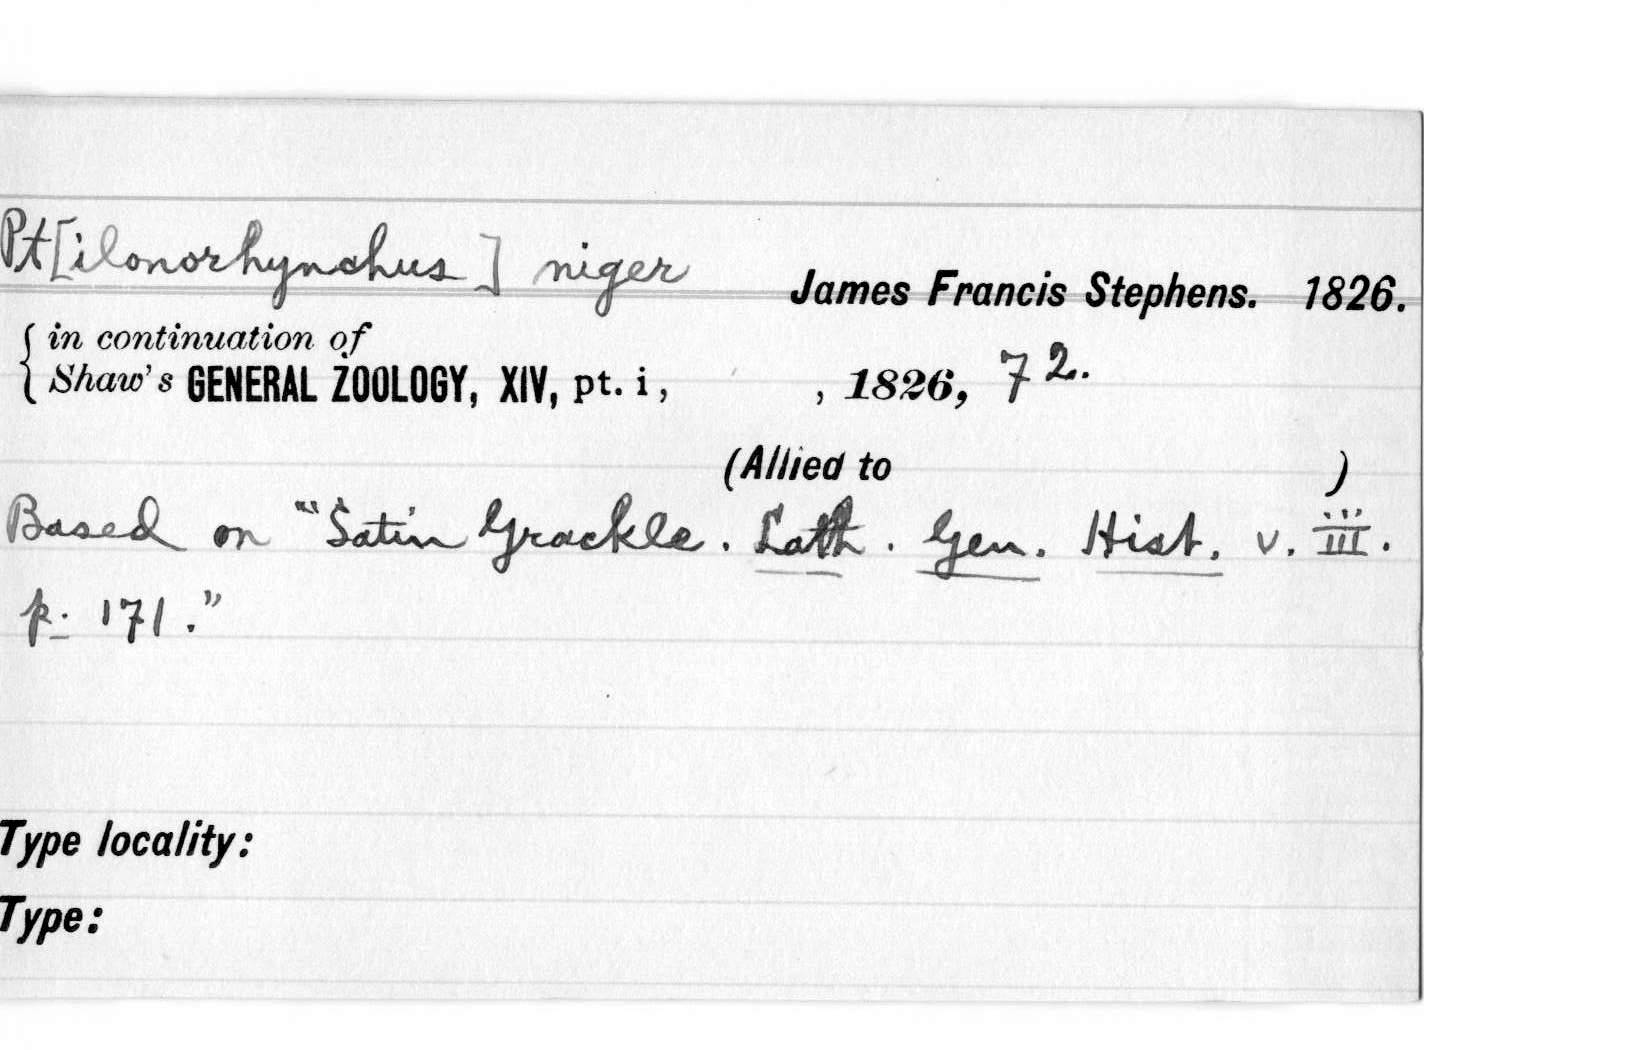 Pt[ilonorhynchus] niger James Francis Stephens. 1826.
{ in continuation of
Shaw's GENERAL ZOOLOGY, XIV, pt. i, , 1826, 72.
(Allied to )
Based on "Satin Grackle. Lath. Gen. Hist. v. iii.
p. 171."
Type locality:
Type: